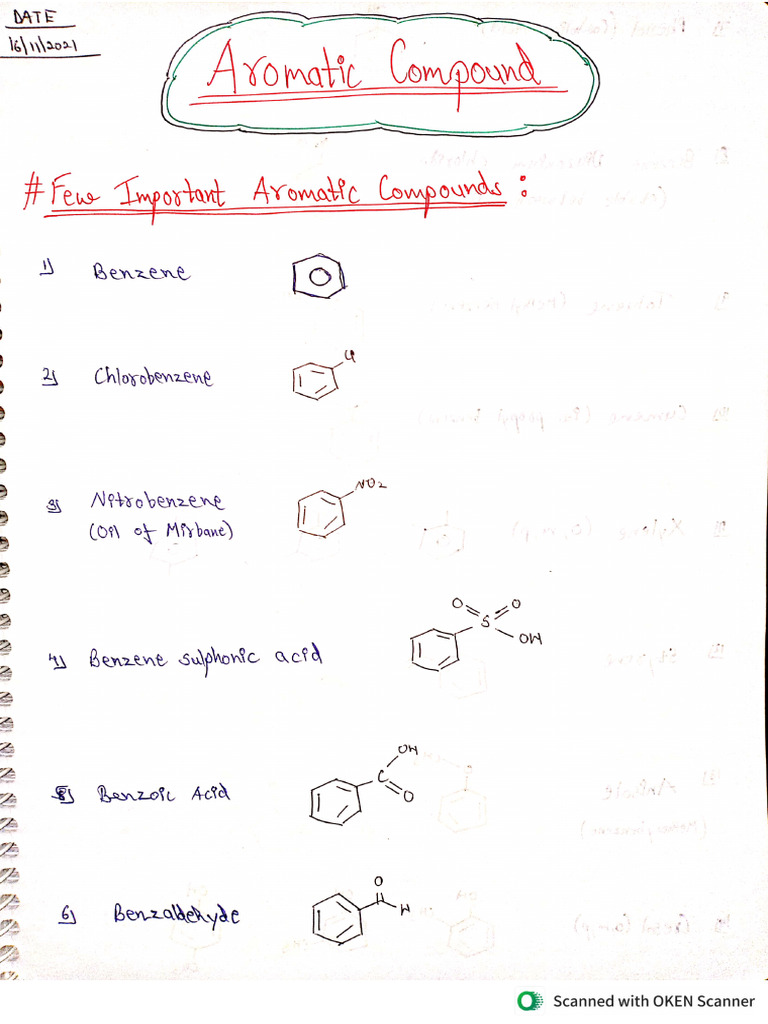 DATE
16/11/2021
Aromatic Compound
# Few Important Aromatic Compounds :
1) Benzene
2) Chlorobenzene
Cl
3) Nitrobenzene
(Oil of Mirbane)
NO2
4) Benzene sulphonic acid
O
S
O
OH
5) Benzoic Acid
OH
C
O
6) Benzaldehyde
O
H
Scanned with OKEN Scanner